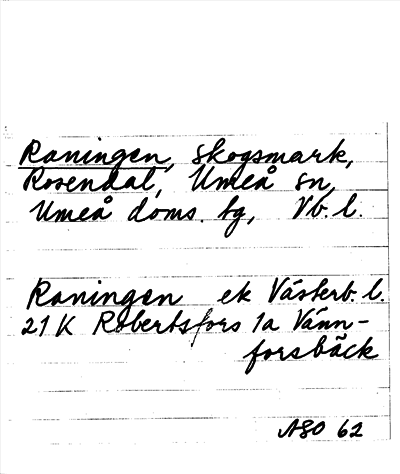 Raningen, skogsmark,
Rosendal, Umeå sn,
Umeå doms. tg, Vb. l.
Raningen ek Västerb. l.
21 K Robertsfors 1a Vänn-
forsbäck
ASO 62